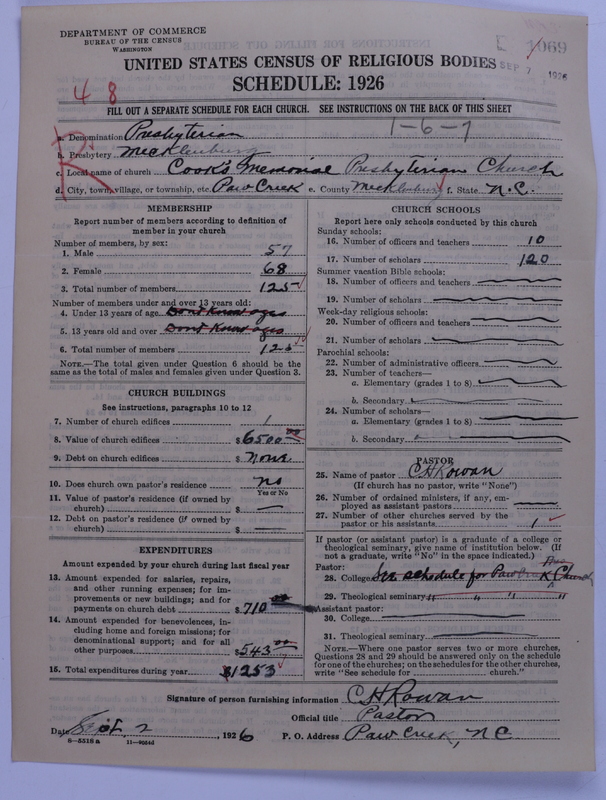 DEPARTMENT OF COMMERCE
BUREAU OF THE CENSUS
WASHINGTON
1069
SEP 7 1926
UNITED STATES CENSUS OF RELIGIOUS BODIES
SCHEDULE: 1926
48
FILL OUT A SEPARATE SCHEDULE FOR EACH CHURCH. SEE INSTRUCTIONS ON THE BACK OF THIS SHEET
1-6-7
R
a. Denomination Presbyterian
b. Presbytery Mecklenburg
c. Local name of church Cook's Memorial Presbyterian Church
d. City, town, village, or township, etc. Paw Creek e. County Mecklenburg f. State N.C.
MEMBERSHIP
Report number of members according to definition of
member in your church
Number of members, by sex:
1. Male 57
2. Female 68
3. Total number of members 125
Number of members under and over 13 years old:
4. Under 13 years of age Dont Know ages
5. 13 years old and over Dont Know ages
6. Total number of members 125
NOTE.—The total given under Question 6 should be
same as the total of males and females given under Question 3.
CHURCH BUILDINGS
See instructions, paragraphs 10 to 12
7. Number of church edifices 1
8. Value of church edifices $6500.00
9. Debt on church edifices $ None
10. Does church own pastor's residence? no
Yes or No
11. Value of pastor's residence (if owned by
church) $ —
12. Debt on pastor's residence (if owned by
church) $ —
EXPENDITURES
Amount expended by your church during last fiscal year
13. Amount expended for salaries, repairs,
and other running expenses; for im-
provements or new buildings; and for
payments on church debt $710.00
14. Amount expended for benevolences, in-
cluding home and foreign missions; for
denominational support; and for all
other purposes $543.00
15. Total expenditures during year $1253
CHURCH SCHOOLS
Report here only schools conducted by this church
Sunday schools:
16. Number of officers and teachers 10
17. Number of scholars 120
Summer vacation Bible schools:
18. Number of officers and teachers
19. Number of scholars
Week-day religious schools:
20. Number of officers and teachers
21. Number of scholars
Parochial schools:
22. Number of administrative officers
23. Number of teachers—
a. Elementary (grades 1 to 8)
b. Secondary
24. Number of scholars—
a. Elementary (grades 1 to 8)
b. Secondary
PASTOR
25. Name of pastor C H Rowan
(If church has no pastor, write "None")
26. Number of ordained ministers, if any, em-
ployed as assistant pastors
27. Number of other churches served by the
pastor or his assistants 1
If pastor (or assistant pastor) is a graduate of a college or
theological seminary, give name of institution below. (If
not a graduate, write "No" in the space indicated.)
Pastor:
28. College See schedule for Paw Creek Pres Church
29. Theological seminary " " " "
Assistant pastor:
30. College
31. Theological seminary
NOTE.—Where one pastor serves two or more churches,
Questions 28 and 29 should be answered only on the schedule
for one of the churches; on the schedules for the other churches,
write "See schedule for church."
Signature of person furnishing information C H Rowan
Official title Pastor
Date Sept. 2, 1926 P. O. Address Paw Creek, N.C.
8—5518 a